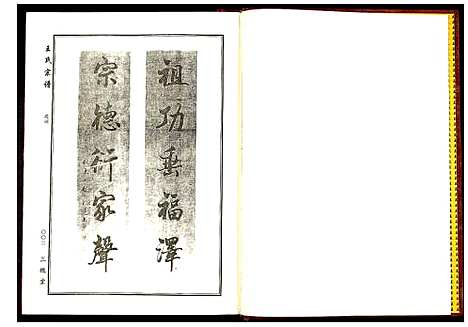 祖功垂福澤
宗德衍家聲
王氏宗谱
三槐堂